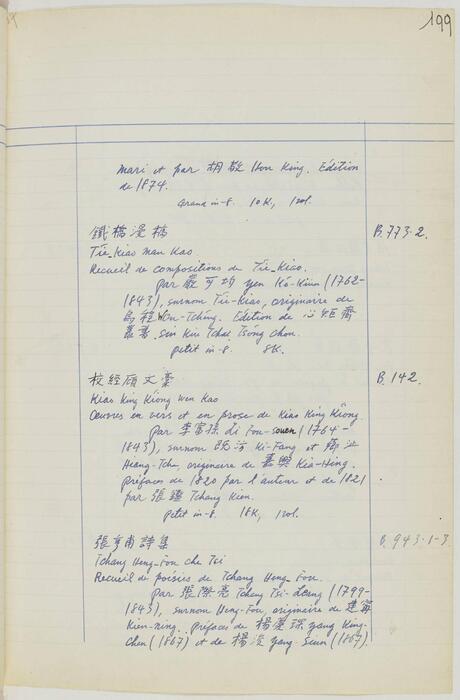 199
mari et par 胡敬 Hou King. Édition
de 1874.
Grand in-8. 10K, 1vol.
鐵橋漫稿 B.773-2.
Tie-Kiao man Kao
Recueil de compositions de Tie-Kiao.
par 嚴可均 yen Ko-Kiun (1762-
1843), surnom Tie-Kiao, originaire de
烏程 Wou-Tch'ing. Édition de 心矩齋
叢書 Sin Kiu Tchai Ts'ong chou.
petit in-8. 8K.
校經廎文稾 B.142.
Kiao King Kiong Wen Kao
Œuvres en vers et en prose de Kiao King Kiong
par 李富孫 Li Fou-souen (1764-
1843), surnom 既汸 Ki-Fang et 薌沚
Heang-Tche, originaire de 嘉興 Kia-Hing.
préfaces de 1820 par l'auteur et de 1821
par 張鑑 Tchang Kien.
Petit in-8. 18K, 1vol.
張亨甫詩集 B.943-1-3.
Tchang Heng-Fou che Tsi
Recueil de poésies de Tchang Heng-Fou.
par 張際亮 Tchang Tsi-Leang (1799-
1843), surnom Heng-Fou, originaire de 建甯
Kien-ning. préfaces de 楊慶琛 yang King-
Chen (1867) et de 楊浚 yang Siun (1867).